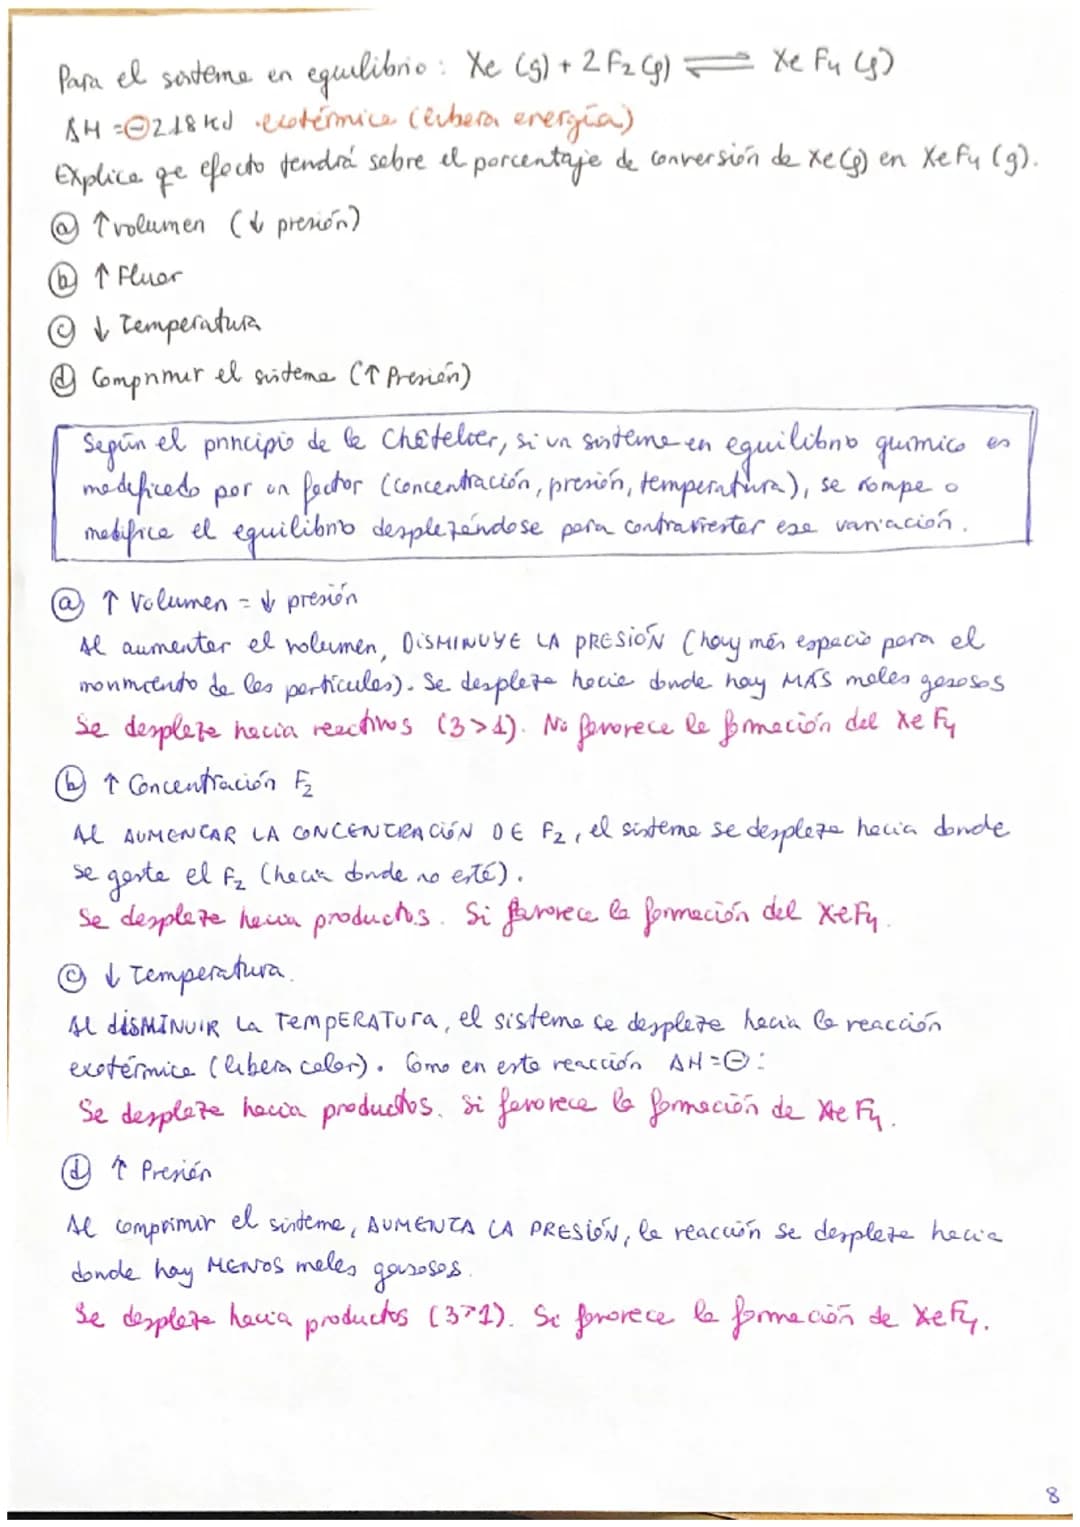 Para el sistema en equilibrio: Xe (g) + 2 F₂ (g) ⇌ Xe F₄ (g)
ΔH = ⊖218 kJ exotérmica (libera energía)
Explica qe efecto tendrá sobre el porcentaje de conversión de Xe(g) en XeF₄ (g).
ⓐ ↑ volumen (↓ presión)
ⓑ ↑ Fluor
ⓒ ↓ Temperatura
ⓓ Comprimir el sistema (↑ Presión)
Según el principio de le Châtelier, si un sistema en equilibrio químico es
modificado por un factor (concentración, presión, temperatura), se rompe o
modifica el equilibrio desplazándose para contrarrestar esa variación.
ⓐ ↑ Volumen = ↓ presión
Al aumentar el volumen, DISMINUYE LA PRESIÓN (hay más espacio para el
movimiento de las partículas). Se desplaza hacia donde hay MÁS moles gaseosos
Se desplaza hacia reactivos (3>1). No favorece la formación del XeF₄
ⓑ ↑ Concentración F₂
AL AUMENTAR LA CONCENTRACIÓN DE F₂, el sistema se desplaza hacia donde
se gaste el F₂ (hacia donde no esté).
Se desplaza hacia productos. Si favorece la formación del XeF₄.
ⓒ ↓ Temperatura.
Al DISMINUIR La TEMPERATURA, el sistema se desplaza hacia la reacción
exotérmica (libera calor). Como en esta reacción ΔH=⊖:
Se desplaza hacia productos. Si favorece la formación de XeF₄.
ⓓ ↑ Presión
Al comprimir el sistema, AUMENTA LA PRESIÓN, la reacción se desplaza hacia
donde hay MENOS moles gaseosos.
Se desplaza hacia productos (3>1). Si favorece la formación de XeF₄.
8